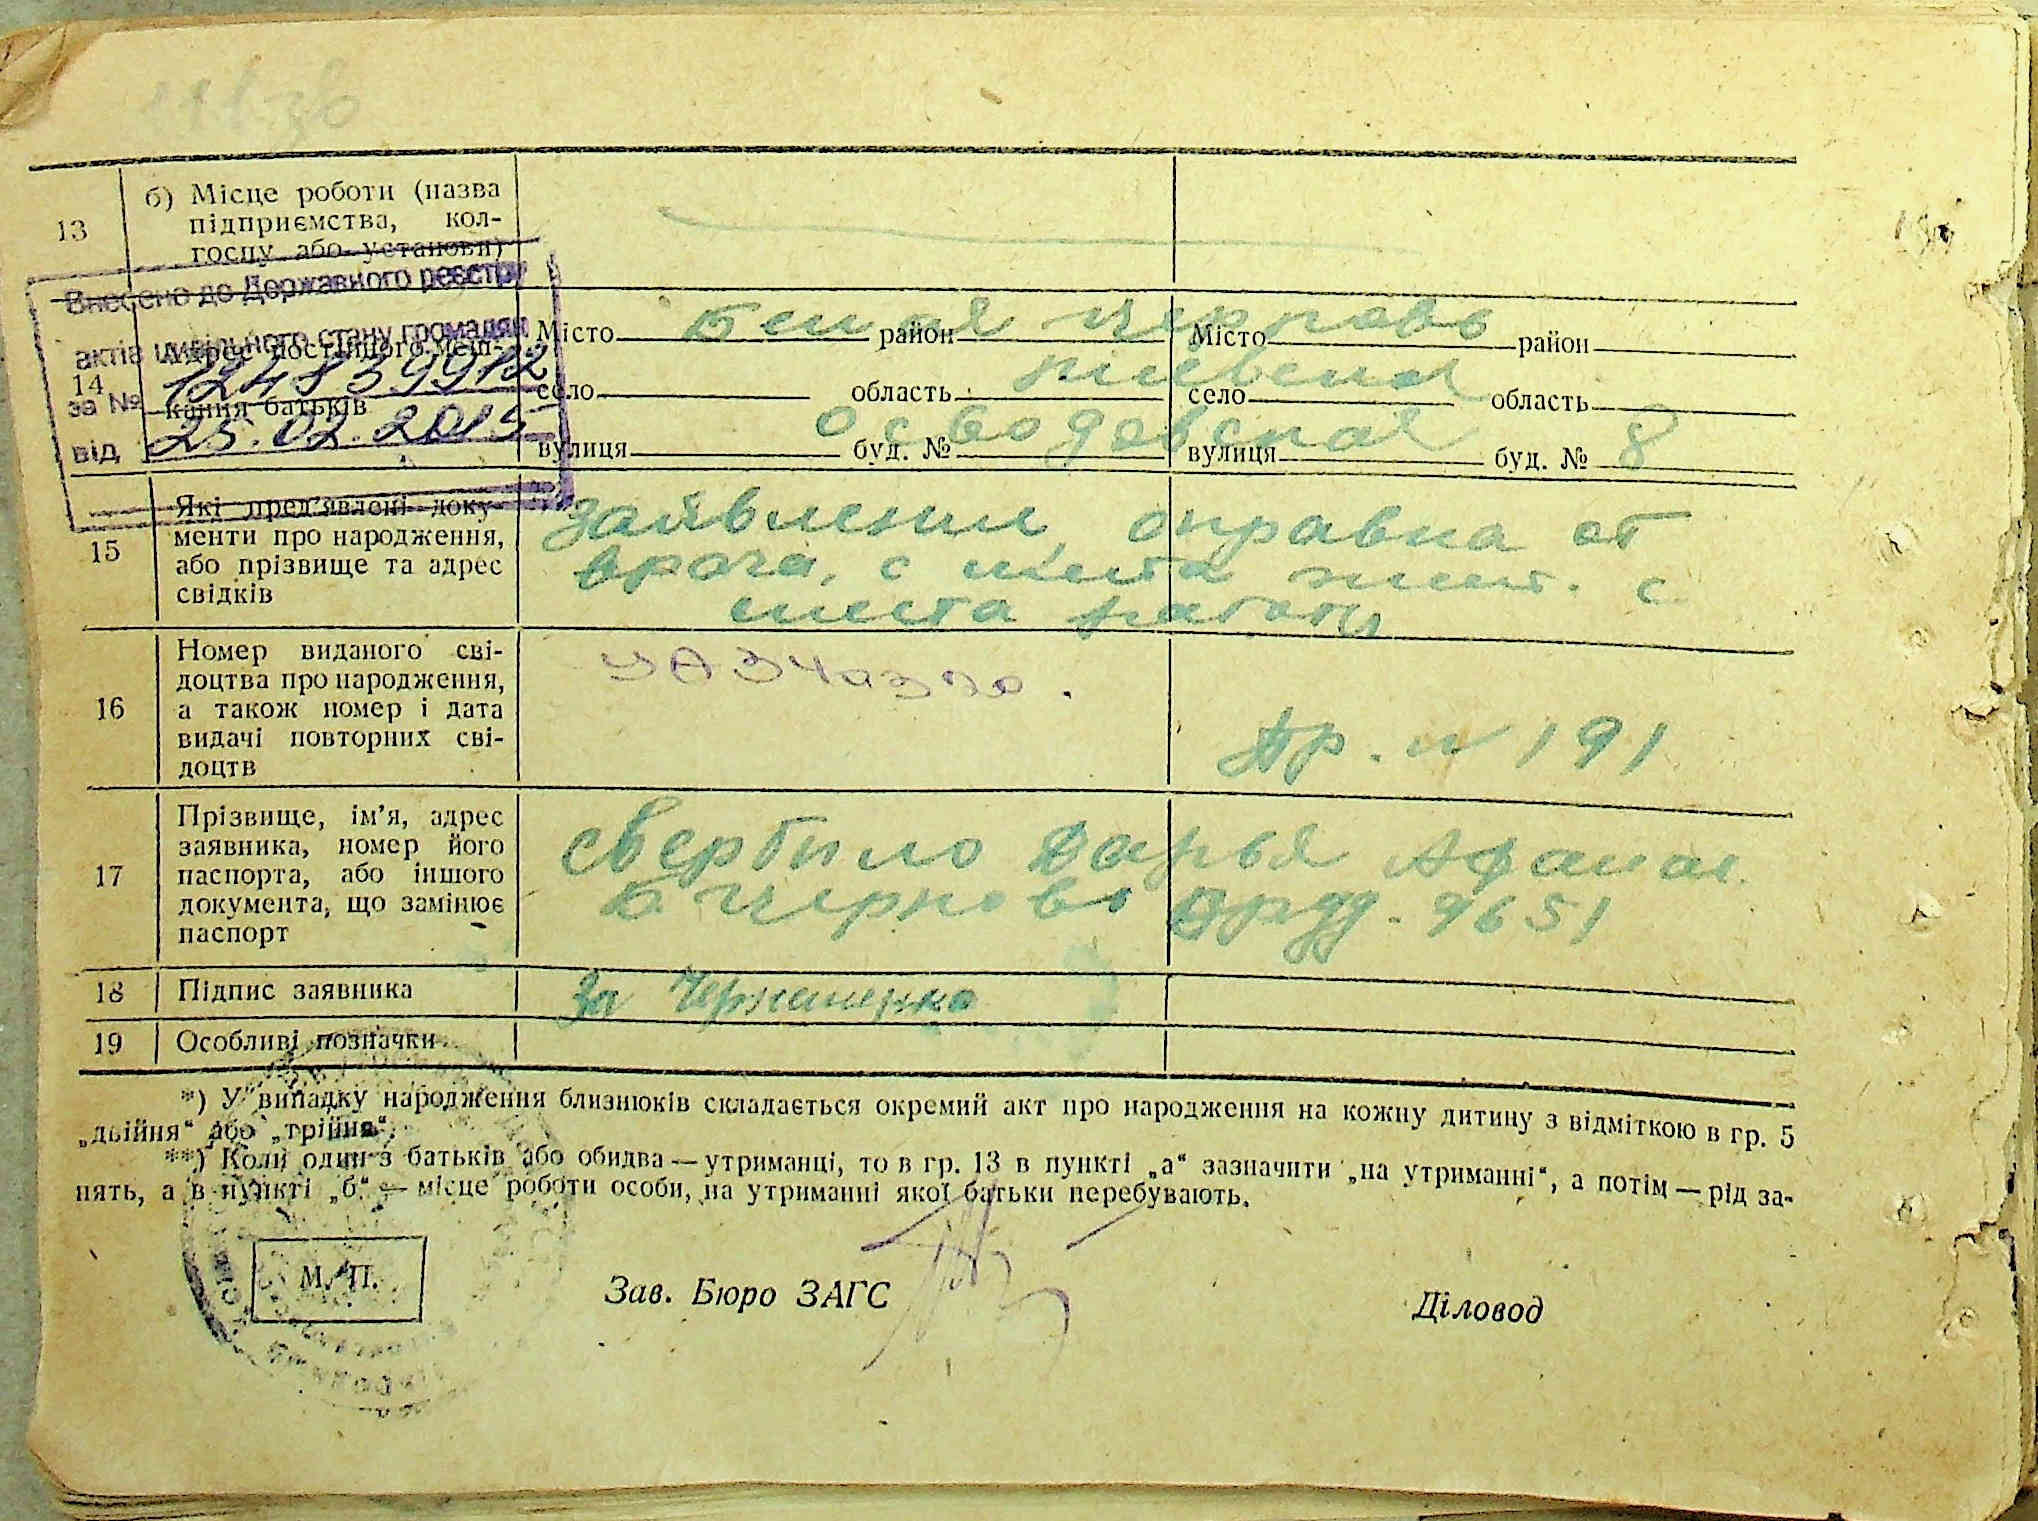 13
б) Місце роботи (назва
підприємства, кол-
госпу або установи)
Внесено до Державного реєстру
актів цивільного стану громадян
за № 1248399912
від 25.02.2015
14
Адрес постійного меш-
кання батьків
Белая Церковь
Місто район Місто район
Киевская
село область село область
8
вулиця буд. № вулиця буд. №
15
Які пред'явлені доку-
менти про народження,
або прізвище та адрес
свідків
заявление, справка от
врача, с места жит. с
места работы
16
Номер виданого сві-
доцтва про народження,
а також номер і дата
видачі повторних сві-
доцтв
№ 191
17
Прізвище, ім'я, адрес
заявника, номер його
паспорта, або іншого
документа, що замінює
паспорт
Свербило Дарья Афанас.
Б. Церковь 9651
18
Підпис заявника
За
19
Особливі позначки
*) У випадку народження близнюків складається окремий акт про народження на кожну дитину з відміткою в гр. 5
„двійня“ або „трійня“.
**) Коли один з батьків або обидва — утриманці, то в гр. 13 в пункті „а“ зазначити „на утриманні“, а потім — рід за-
нять, а в пункті „б“ — місце роботи особи, на утриманні якої батьки перебувають.
М. П.
Зав. Бюро ЗАГС
Діловод